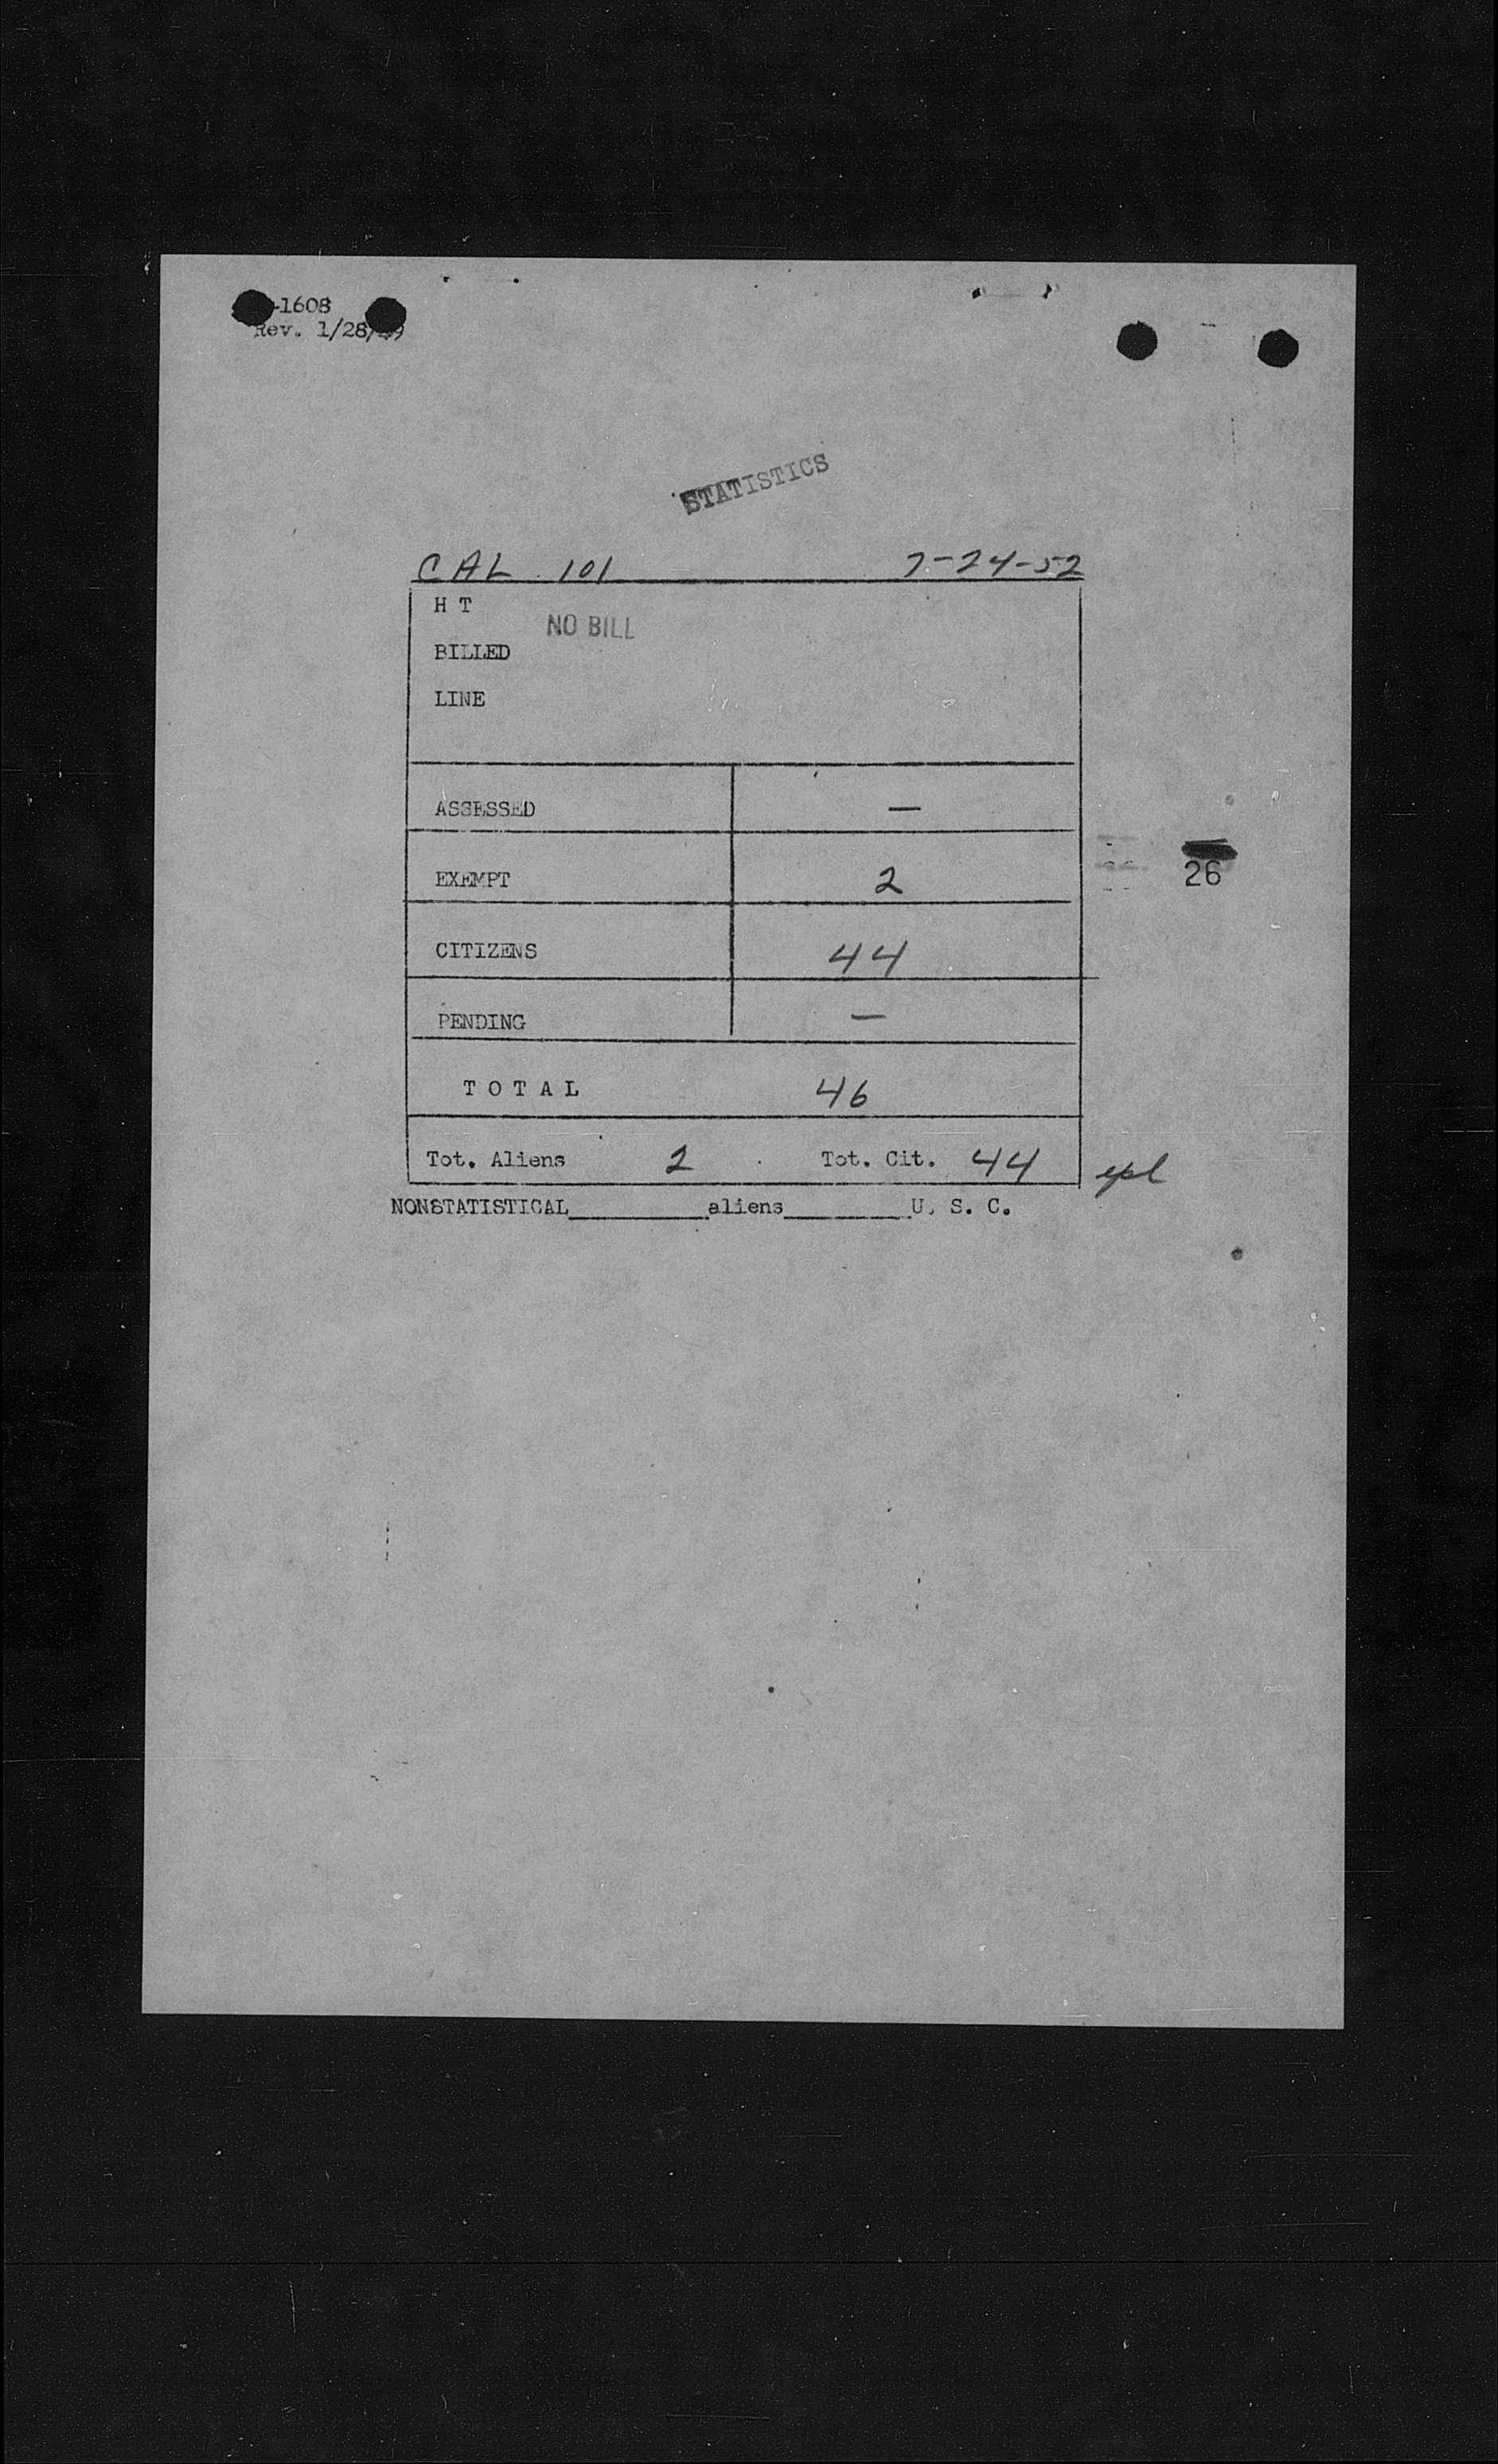 -1608
Rev. 1/28/49
STATISTICS
CAL 101 7-24-52
H T
NO BILL
BILLED
LINE
ASSESSED —
EXEMPT 2
26
CITIZENS 44
PENDING —
T O T A L 46
Tot. Aliens 2 Tot. Cit. 44
NONSTATISTICAL__________aliens__________U. S. C.